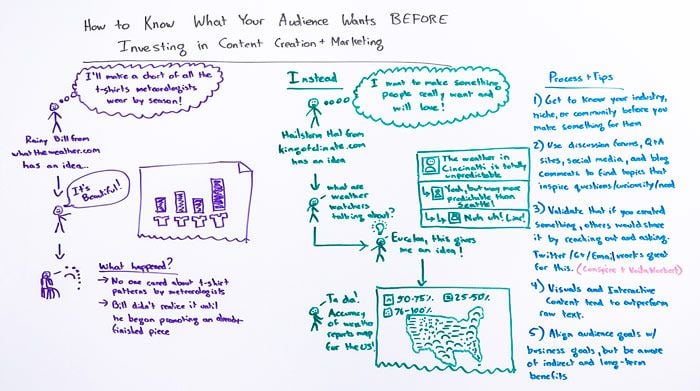 How to Know What Your Audience Wants BEFORE
Investing in Content Creation + Marketing
I'll make a chart of all the
t-shirts meteorologists
wear by season!
Rainy Bill from
whattheweather.com
has an idea...
It's
Beautiful!
What happened?
→ No one cared about t-shirt
patterns by meteorologists
→ Bill didn't realize it until
he began promoting an already-
finished piece
Instead
I want to make something
people really want and
will love!
Hailstone Hal from
kingofclimate.com
has an idea
what are
weather
watchers
talking about?
The weather in
Cincinatti is totally
unpredictable
Yeah, but way more
predictable than
Seattle!
Nuh uh! Liar!
Eureka, this gives
me an idea!
Ta da!
Accuracy
of weather
reports map
for the US!
50-75%
25-50%
76-100%
Process + Tips
1) Get to know your industry,
niche, or community before you
make something for them
2) Use discussion forums, Q+A
sites, social media, and blog
comments to find topics that
inspire questions/curiosity/need
3) Validate that if you created
something, others would share
it by reaching out and asking.
Twitter/G+/Email works great
for this. (Conspire + VoilaNorbert)
4) Visuals and Interactive
Content tend to outperform
raw text.
5) Align audience goals w/
business goals, but be aware
of indirect and long-term
benefits